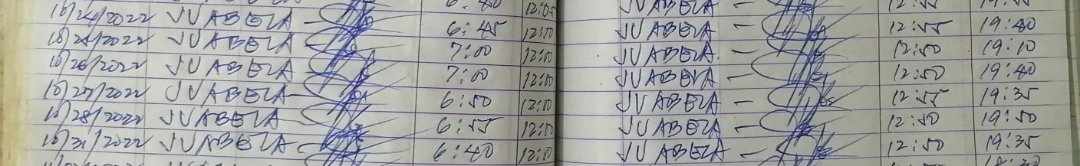 10/24/2022 JUABELA 6:45 12:00 JUABELA 12:55 19:40
10/25/2022 JUABELA 7:00 12:00 JUABELA 12:50 19:10
10/26/2022 JUABELA 7:00 12:00 JUABELA 12:50 19:40
10/27/2022 JUABELA 6:50 12:00 JUABELA 12:55 19:35
10/28/2022 JUABELA 6:55 12:00 JUABELA 12:50 19:50
10/31/2022 JUABELA 6:40 JUABELA 12:50 19:35